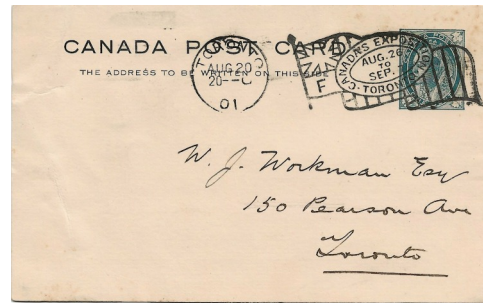 CANADA POST CARD
THE ADDRESS TO BE WRITTEN ON THIS SIDE
TORONTO
AUG 20
20--
01
F
CANADA'S EXPOSITION
AUG. 26
TO
SEP.
TORONTO
W. J. Workman Esq
150 Pearson Ave
Toronto